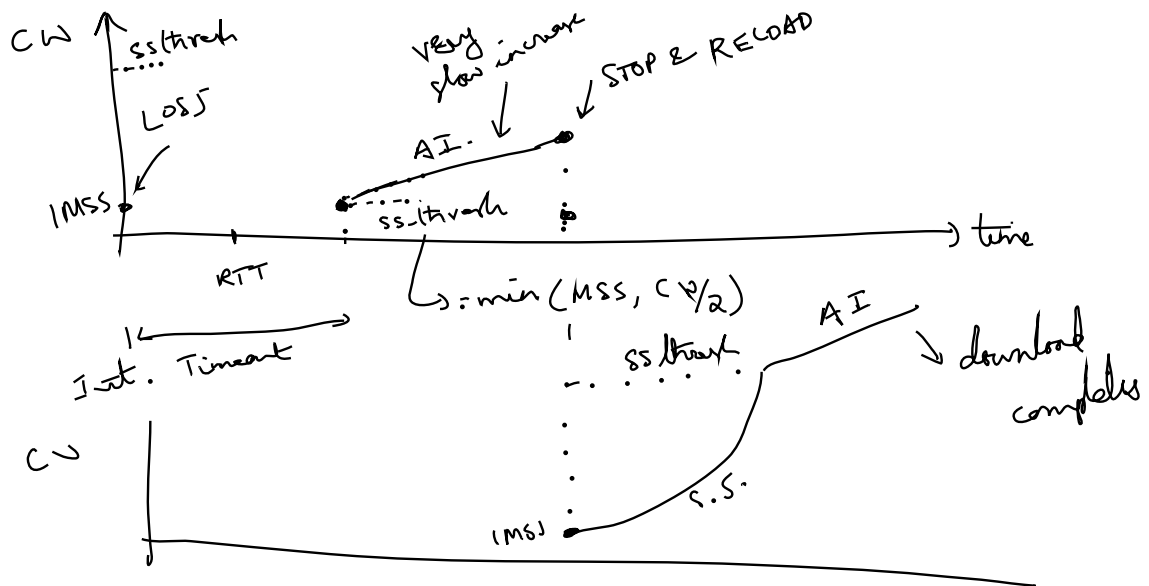 CW
ssthresh
LOSS
1MSS
very
slow increase
AI.
STOP & RELOAD
ss_thresh
time
RTT
:=min (MSS, CW/2)
Init. Timeout
AI
ssthresh
download
completes
CW
S.S.
1MSS